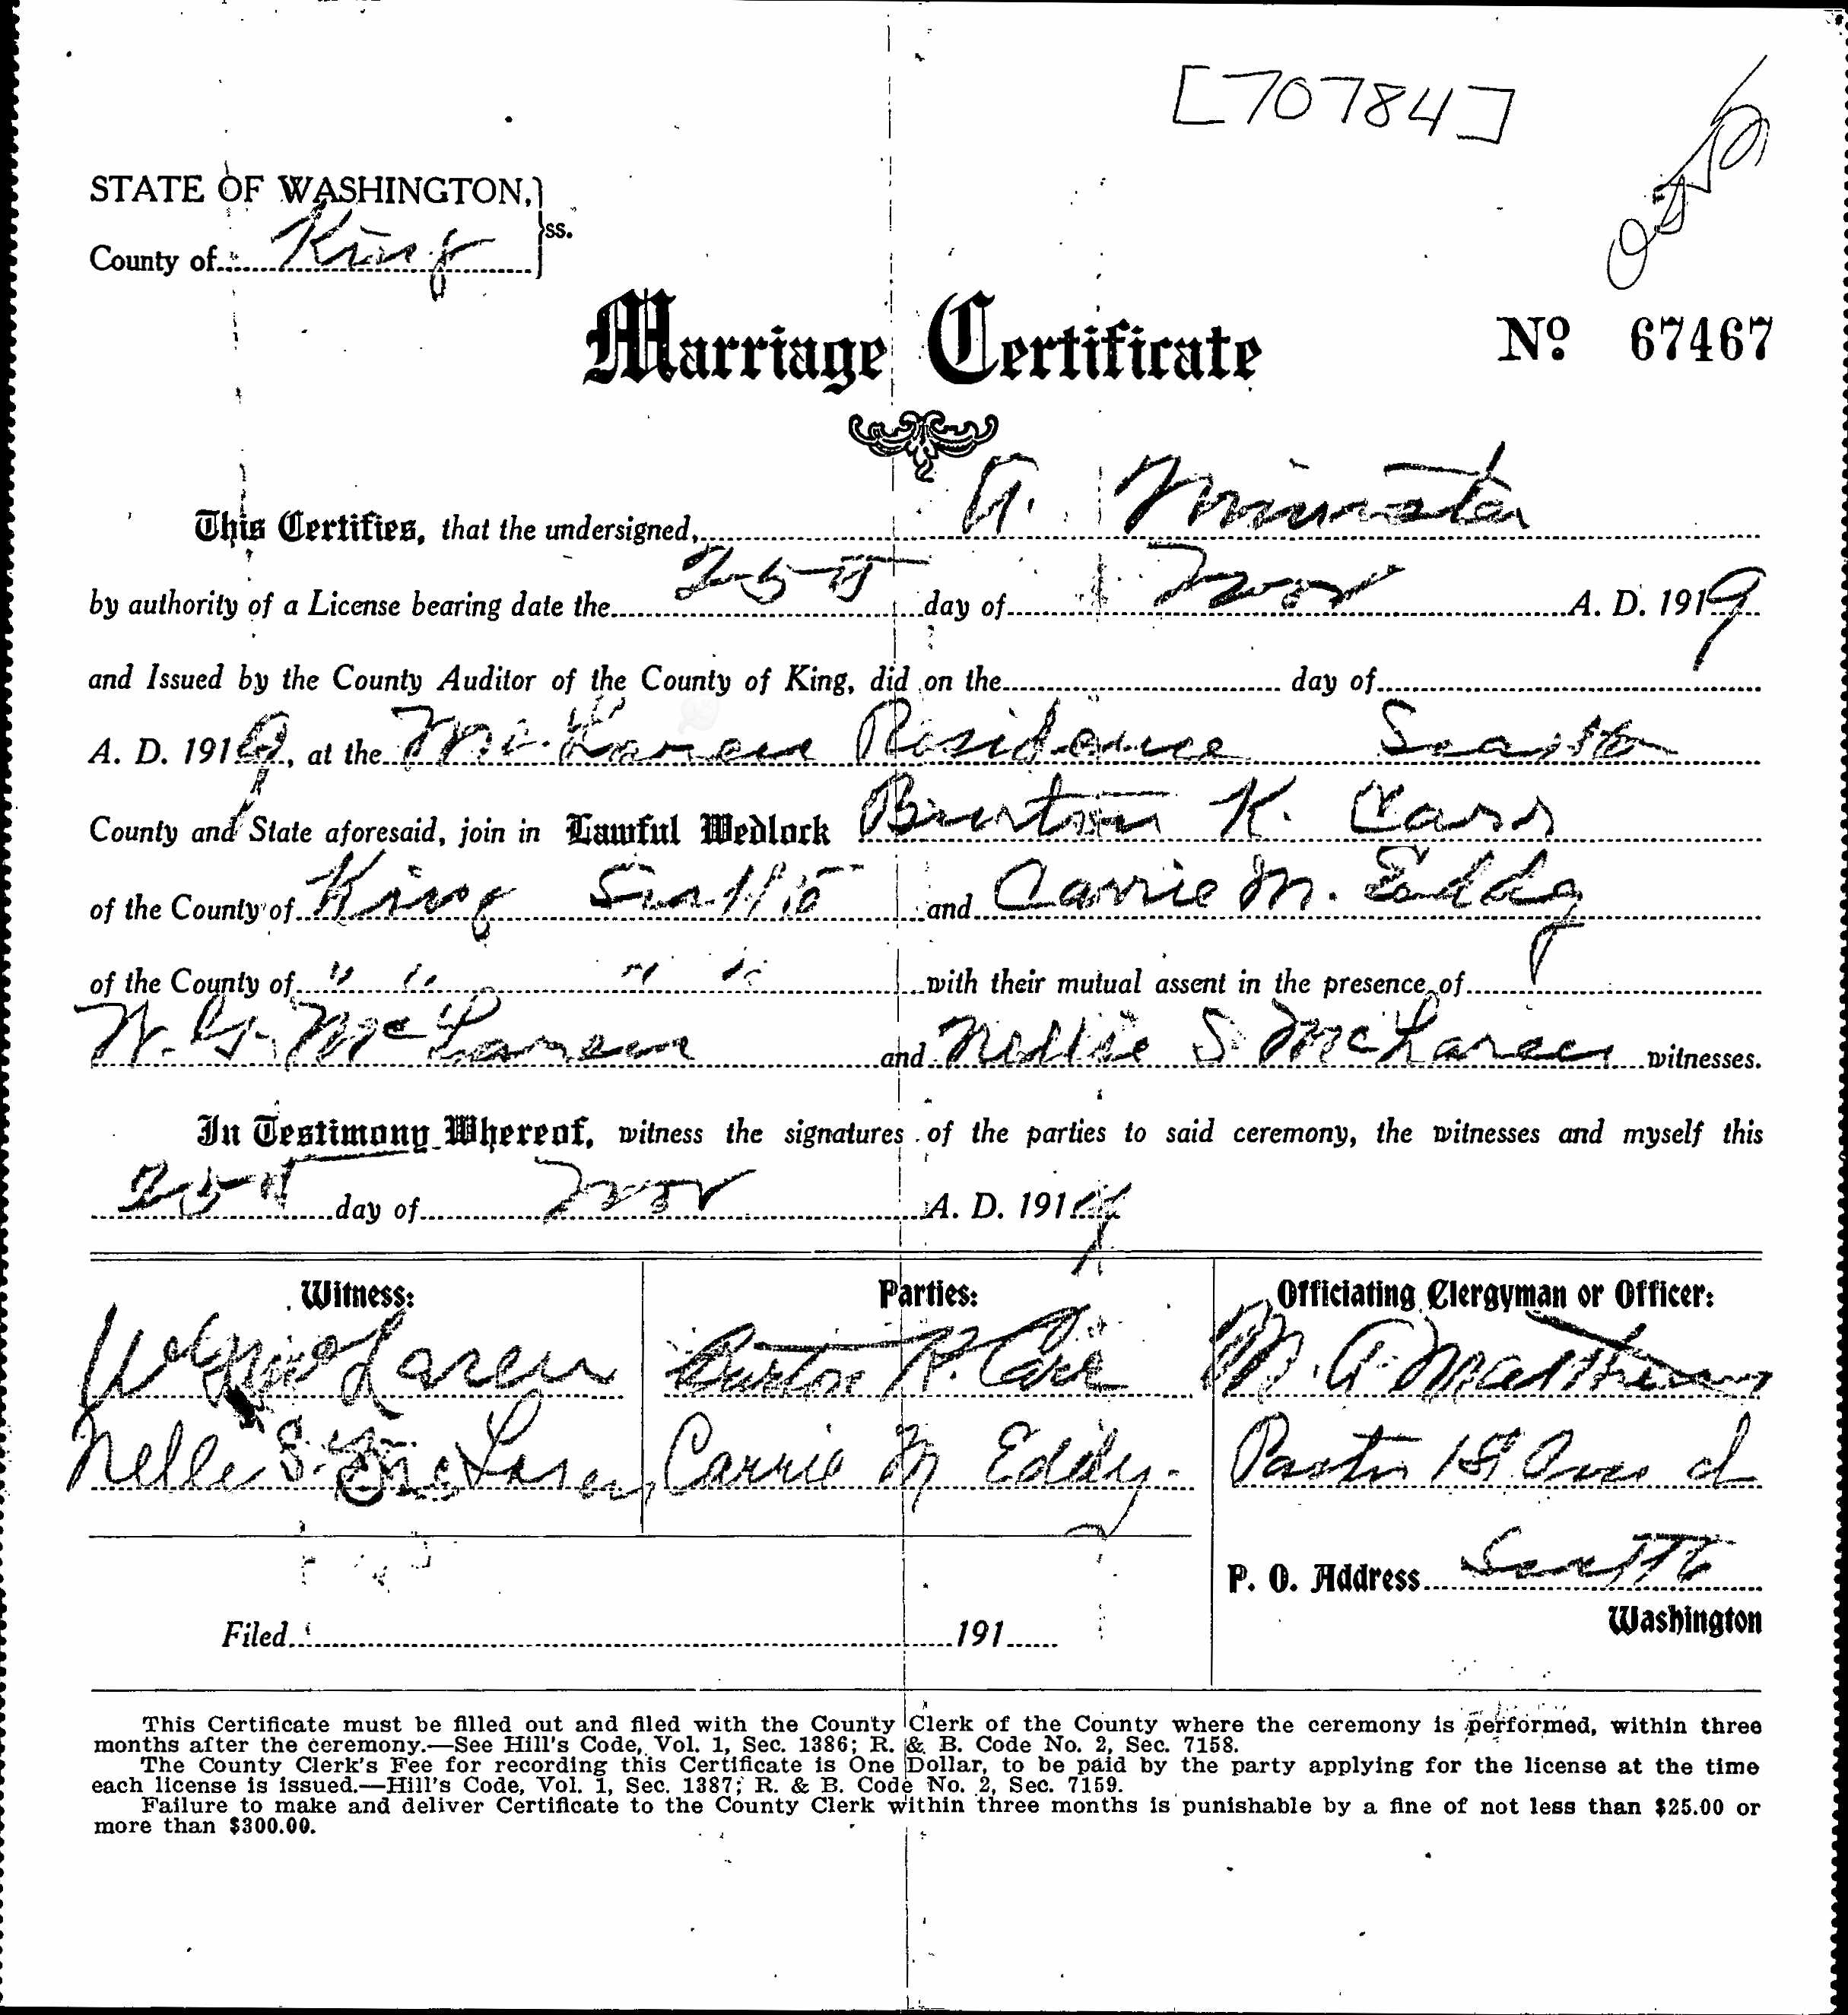 [70784]
STATE OF WASHINGTON,
County of King ss.
Marriage Certificate
No 67467
This Certifies, that the undersigned, A. Minister
by authority of a License bearing date the 25th day of Nov A. D. 1919
and Issued by the County Auditor of the County of King, did on the day of
A. D. 1919, at the McLaren Residence Seattle
County and State aforesaid, join in Lawful Wedlock Burton K. Carr
of the County of King Seattle and Carrie M. Eddy
of the County of " " " " with their mutual assent in the presence of
W. G. McLaren and Nellie S. McLaren witnesses.
In Testimony Whereof, witness the signatures of the parties to said ceremony, the witnesses and myself this
25th day of Nov A. D. 1919
Witness: Parties: Officiating Clergyman or Officer:
W G McLaren Burton K. Carr M. A. Matthews
Nelle S. McLaren Carrie M Eddy. Pastor 1st
P. O. Address Seattle
Washington
Filed 191
This Certificate must be filled out and filed with the County Clerk of the County where the ceremony is performed, within three
months after the ceremony.—See Hill's Code, Vol. 1, Sec. 1386; R. & B. Code No. 2, Sec. 7158.
The County Clerk's Fee for recording this Certificate is One Dollar, to be paid by the party applying for the license at the time
each license is issued.—Hill's Code, Vol. 1, Sec. 1387; R. & B. Code No. 2, Sec. 7159.
Failure to make and deliver Certificate to the County Clerk within three months is punishable by a fine of not less than $25.00 or
more than $300.00.